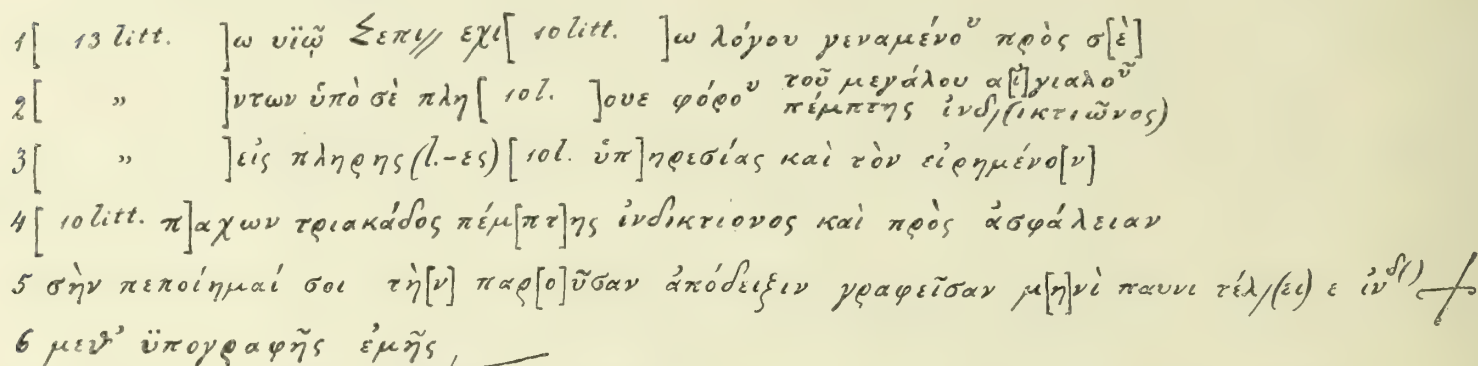 1[ 13 litt. ]ω υἱῷ Σεπι// εχι[ 10 litt. ]ω λόγου γεναμένου πρὸς σ[ὲ]
2[ " ]ντων ὑπὸ σὲ πλη[ 10 l. ]ουε φόρου τοῦ μεγάλου α[ἰ]γιαλοῦ
πέμπτης ἰνδ/(ικτιῶνος)
3[ " ]εἰς πληρης (l. -ες) [ 10 l. ὑπ]ηρεσίας καὶ τὸν εἰρημένο[ν]
4[ 10 litt. π]αχων τριακάδος πέμ[πτ]ης ἰνδικτιονος καὶ πρὸς ἀσφάλειαν
5 σὴν πεποίημαί σοι τὴ[ν] παρ[ο]ῦσαν ἀπόδειξιν γραφεῖσαν μ[η]νὶ παυνι τέλ/(ει) ε ἰνδ()
6 μεθ' ϋπογραφῆς ἐμῆς